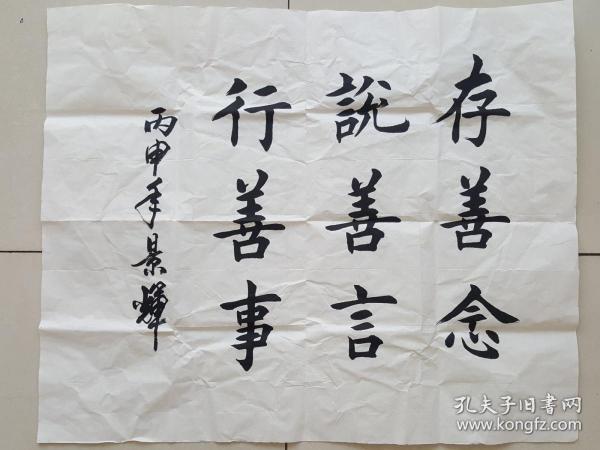 存善念
說善言
行善事
丙申年景輝
孔夫子旧书网
www.kongfz.com